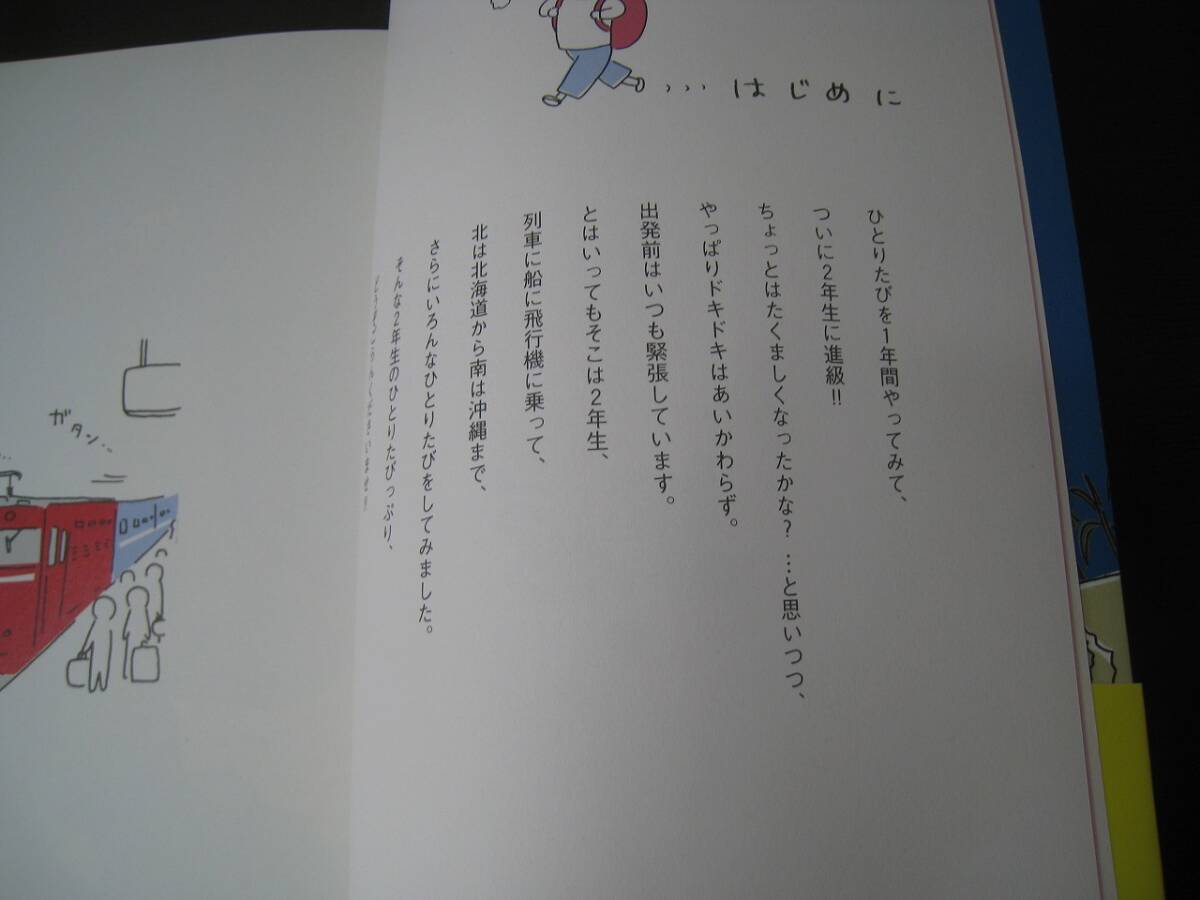 …はじめに
ひとりたびを1年間やってみて、
ついに2年生に進級!!
ちょっとはたくましくなったかな?…と思いつつ、
やっぱりドキドキはあいかわらず。
出発前はいつも緊張しています。
とはいってもそこは2年生、
列車に船に飛行機に乗って、
北は北海道から南は沖縄まで、
さらにいろんなひとりたびをしてみました。
そんな2年生のひとりたびっぷり、
ガタン…